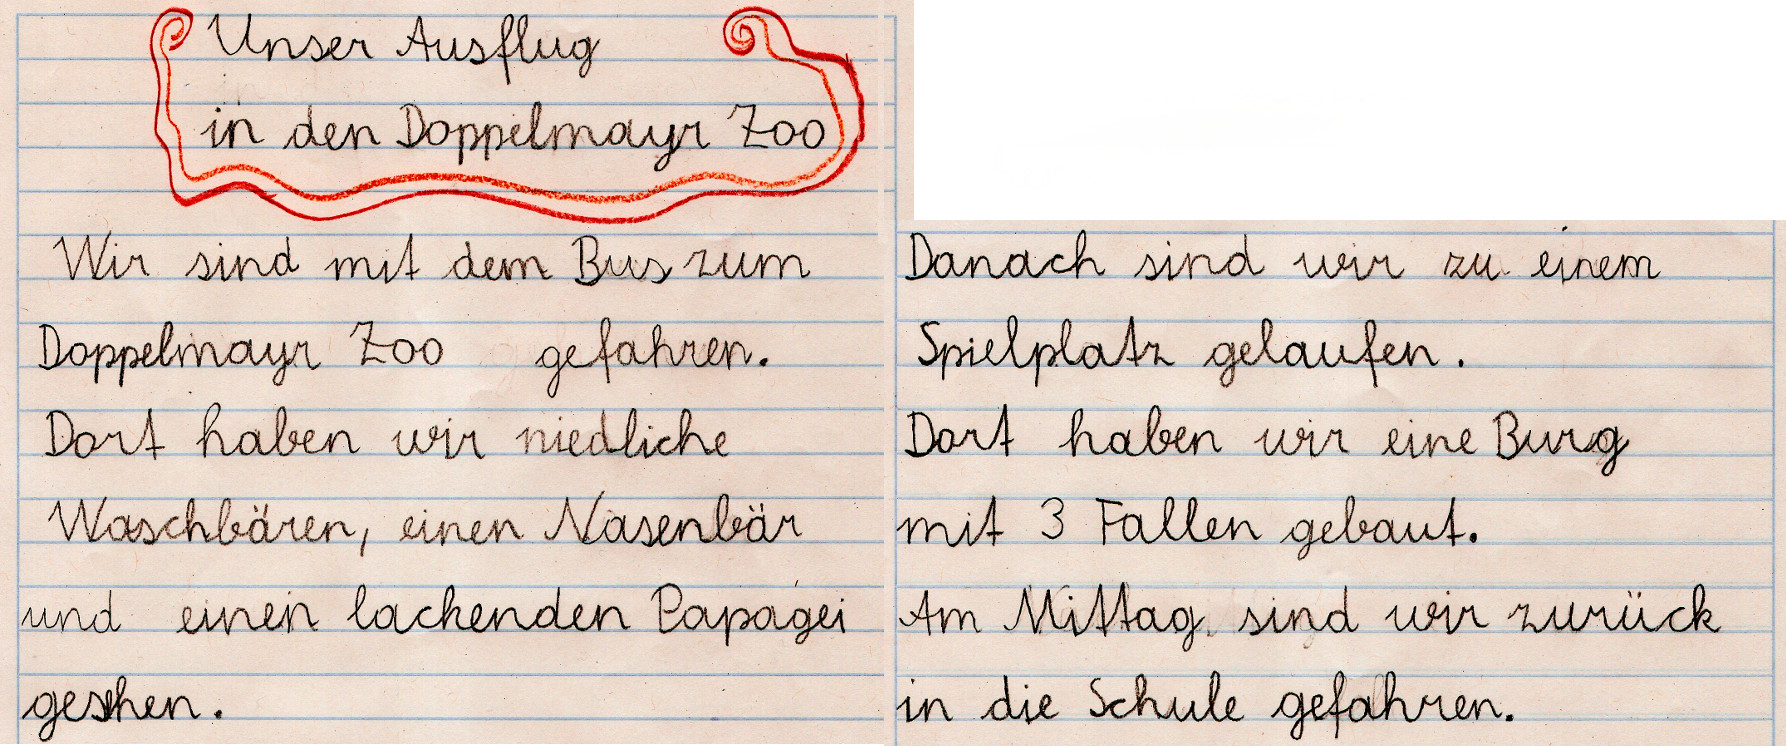 Unser Ausflug
in den Doppelmayr Zoo
Wir sind mit dem Bus zum
Doppelmayr Zoo gefahren.
Dort haben wir niedliche
Waschbären, einen Nasenbär
und einen lachenden Papagei
gesehen.
Danach sind wir zu einem
Spielplatz gelaufen.
Dort haben wir eine Burg
mit 3 Fallen gebaut.
Am Mittag sind wir zurück
in die Schule gefahren.